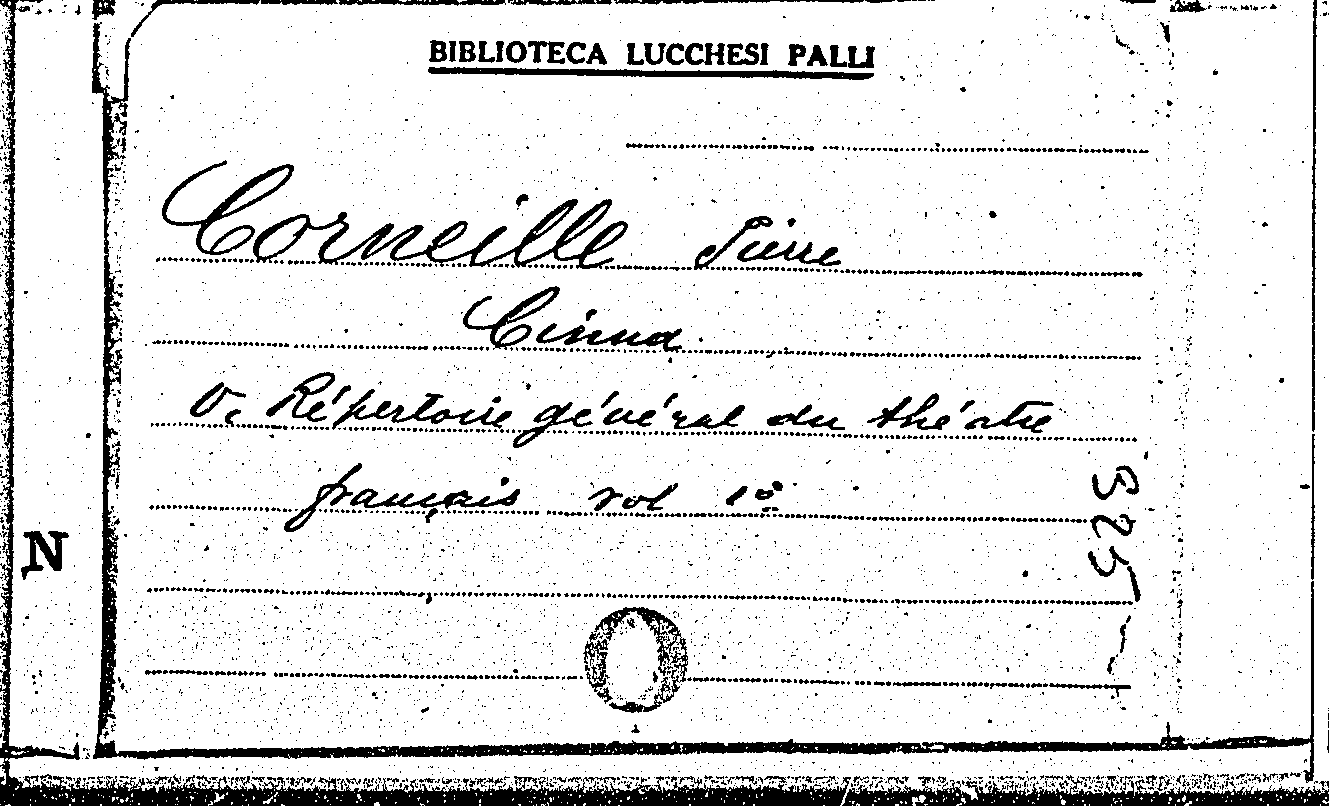 BIBLIOTECA LUCCHESI PALLI
Corneille Pierre
Cinna
V. Répertoire général du théatre
français vol 1º
N
325